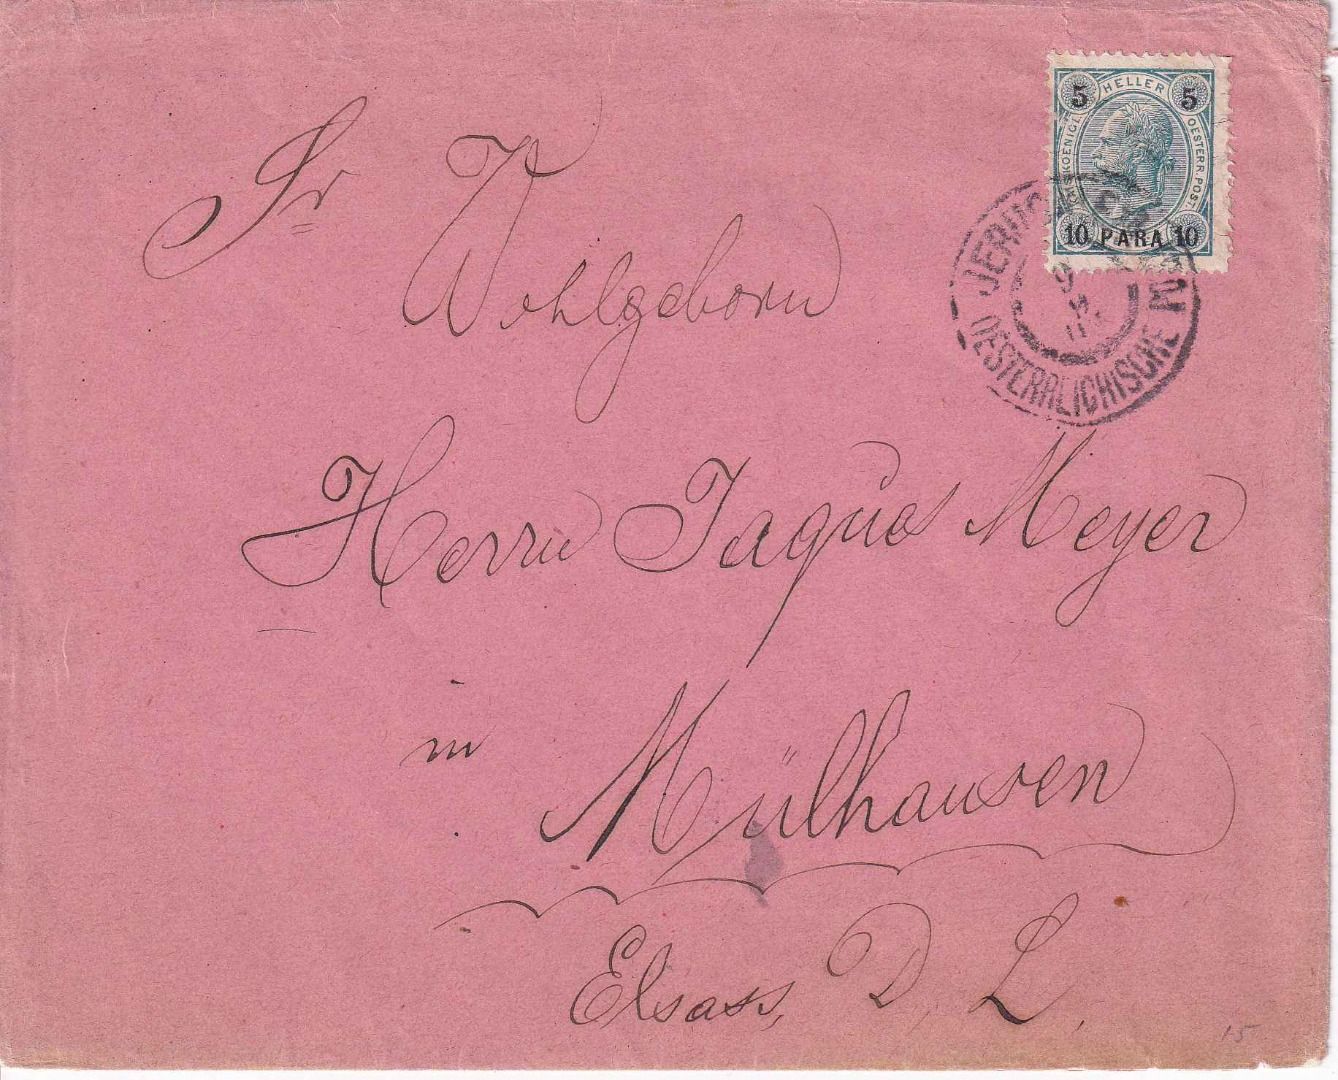 5 HELLER 5
KOENIGL. OESTERR. POST
10 PARA 10
OESTERREICHISCHE
Sr Wohlgeborn
Herrn Jaques Meyer
in Mülhausen
Elsass, D. L.
15